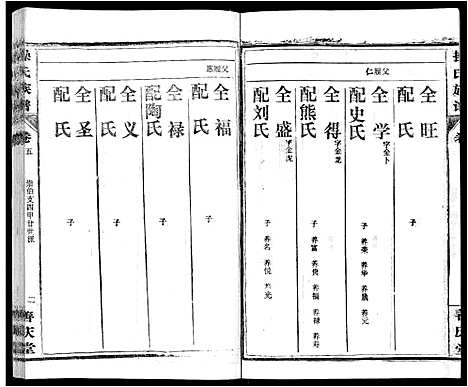 父履仁
全旺
配氏
子
全学 字金卜
配史氏
子 养荣 养华 养晟 养元
全得 字金龙
配熊氏
子 养富 养贵 养福 养禄 养寿
全盛 字金虎
配刘氏
子 养名 养悦 养光
善庆堂
父履惠
全福
配氏
子
全禄
配陶氏
子
全义
配氏
子
全圣
配氏
子
氏族谱
卷五
崇伯支四甲廿世派
二
善庆堂